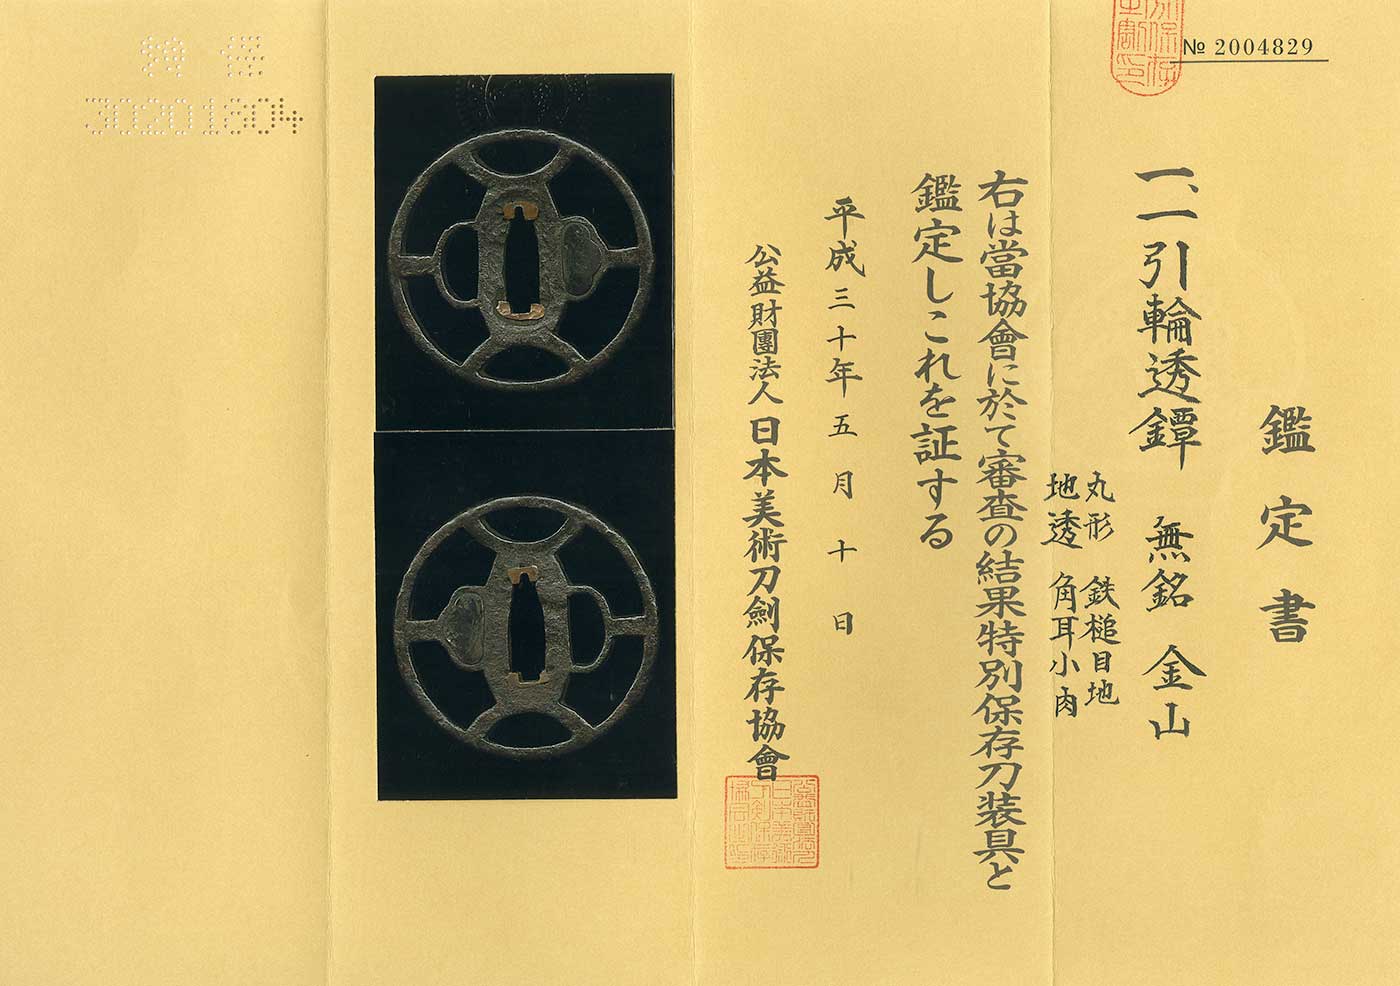 № 2004829
鑑定書
一、二引輪透鐔 無銘 金山
丸形 鉄槌目地
地透 角耳小肉
右は當協會に於て審査の結果特別保存刀装具と
鑑定しこれを証する
平成三十年五月十日
公益財團法人 日本美術刀劍保存協會
30201804